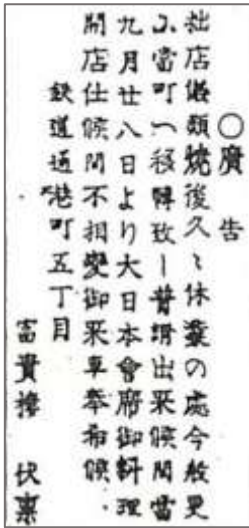 ○廣告
拙店儀類焼後久々休業の處今般更
に當町へ移轉致し普請出来候間當
九月廿八日より大日本會席御料理
開店仕候間不相變御来車奉希候
鉄道通港町五丁目
富貴樓 伏稟